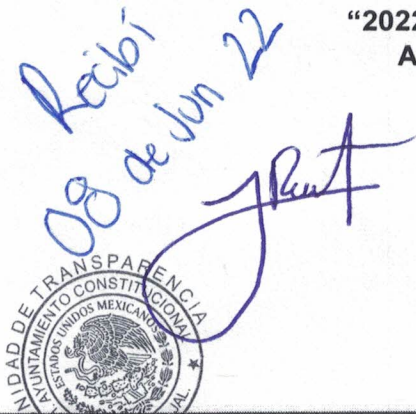 "2022
A
Recibí
08 de Jun 22
NIDAD DE TRANSPARENCIA
AYUNTAMIENTO CONSTITUCIONAL
ESTADOS UNIDOS MEXICANOS
JAL.